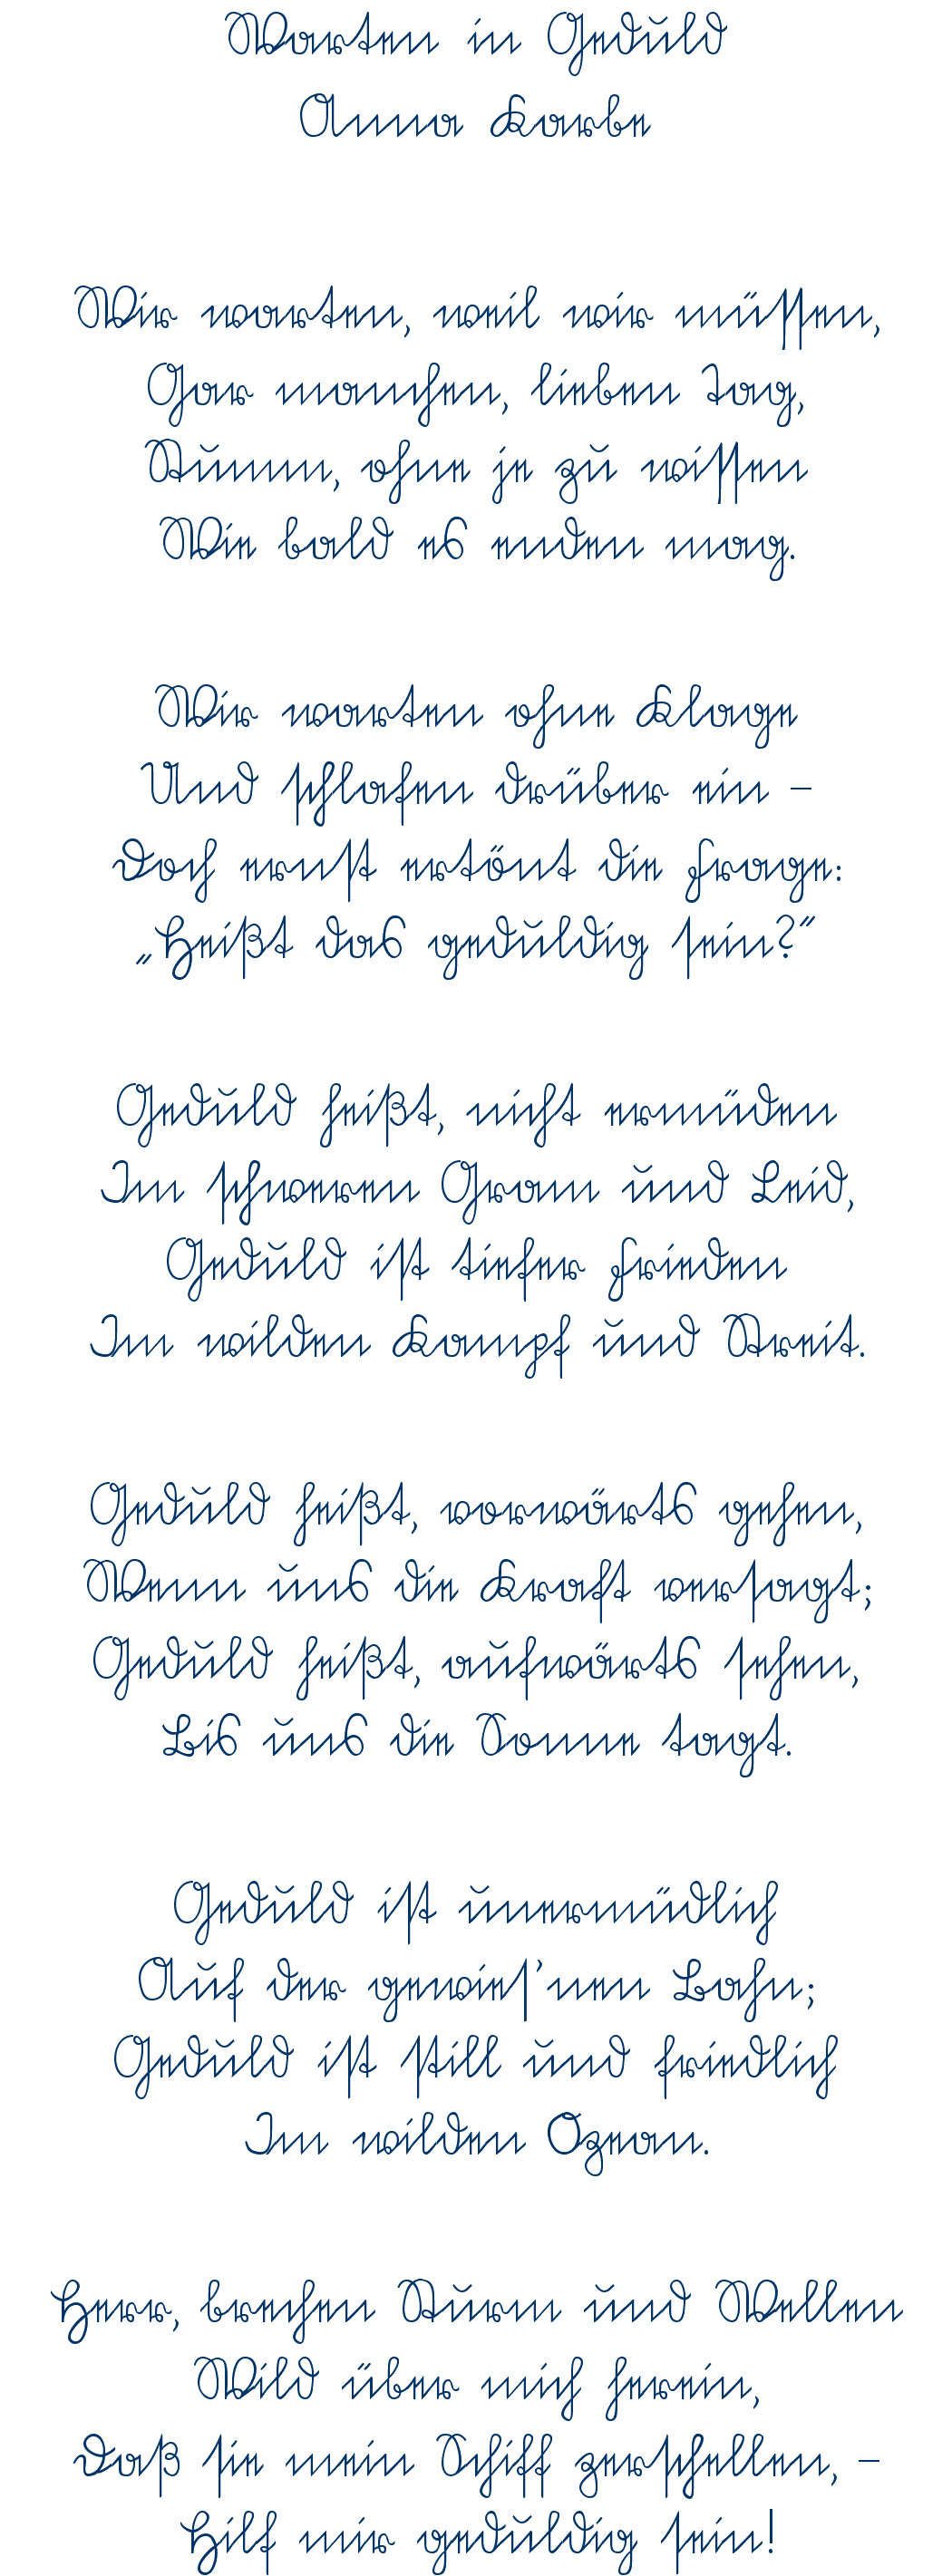 Warten in Geduld
Anna Karbe
Wir warten, weil wir müssen,
Gar manchen, lieben Tag,
Stumm, ohne je zu wissen
Wie bald es enden mag.
Wir warten ohne Klage
Und schlafen drüber ein –
Doch ernst ertönt die Frage:
„Heißt das geduldig sein?“
Geduld heißt, nicht ermüden
Im schweren Gram und Leid,
Geduld ist tiefer Frieden
Im wilden Kampf und Streit.
Geduld heißt, vorwärts gehen,
Wenn uns die Kraft versagt;
Geduld heißt, aufwärts sehen,
Bis uns die Sonne tagt.
Geduld ist unermüdlich
Auf der gewies’nen Bahn;
Geduld ist still und friedlich
Im wilden Ozean.
Herr, brechen Sturm und Wellen
Wild über mich herein,
Daß sie mein Schiff zerschellen, –
Hilf mir geduldig sein!